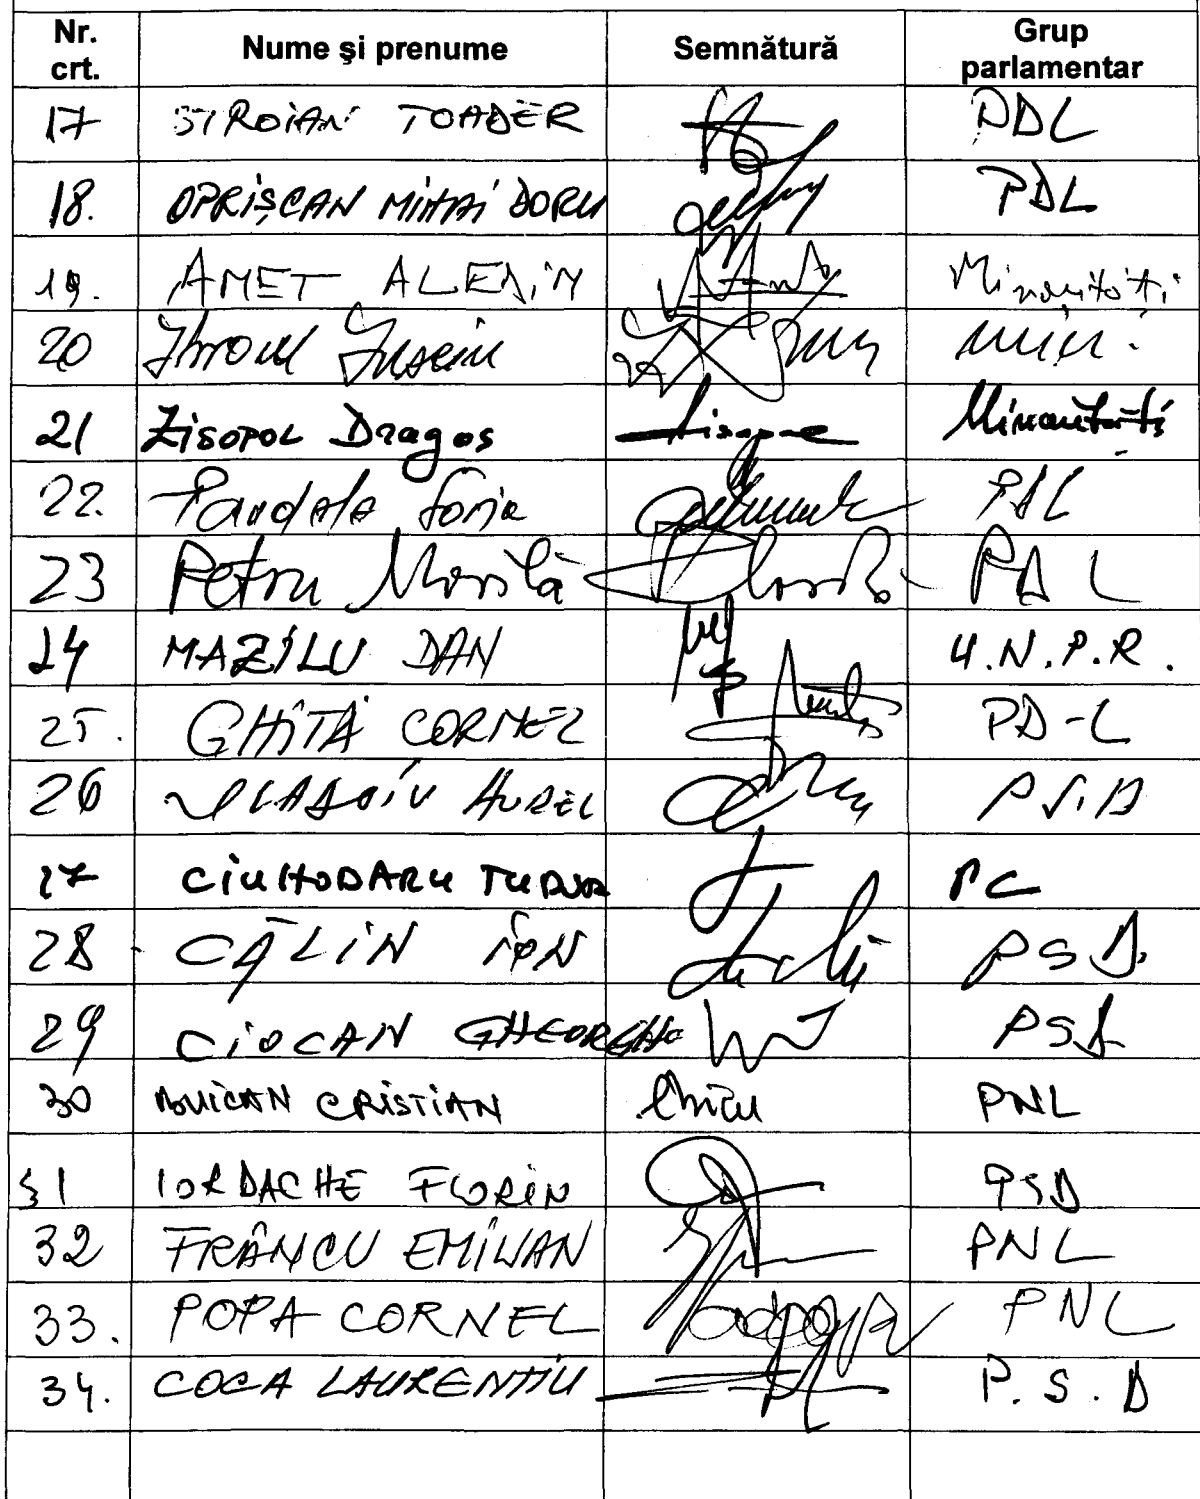 Nr. crt. Nume și prenume Semnătură Grup parlamentar
17 STROIAN TOADER PDL
18. OPRIȘCAN MIHAI DORU PDL
19. AMET ALEDIN Minorități
20 Ibram Iusein min.
21 Zisopol Dragos Minorități
22. Pardala PDL
23 Petru Movilă PDL
24 MAZILU DAN U.N.P.R.
25. GHIȚĂ CORNEL PD-L
26 VLĂDOIU AUREL PSD
27 CIUHODARU TUDOR PC
28 CĂLIN ION PSD.
29 CIOCAN GHEORGHE PSD
30 BUICAN CRISTIAN PNL
31 IORDACHE FLORIN PSD
32 FRÂNCU EMILIAN PNL
33. POPA CORNEL PNL
34. COCA LAURENTIU P.S.D